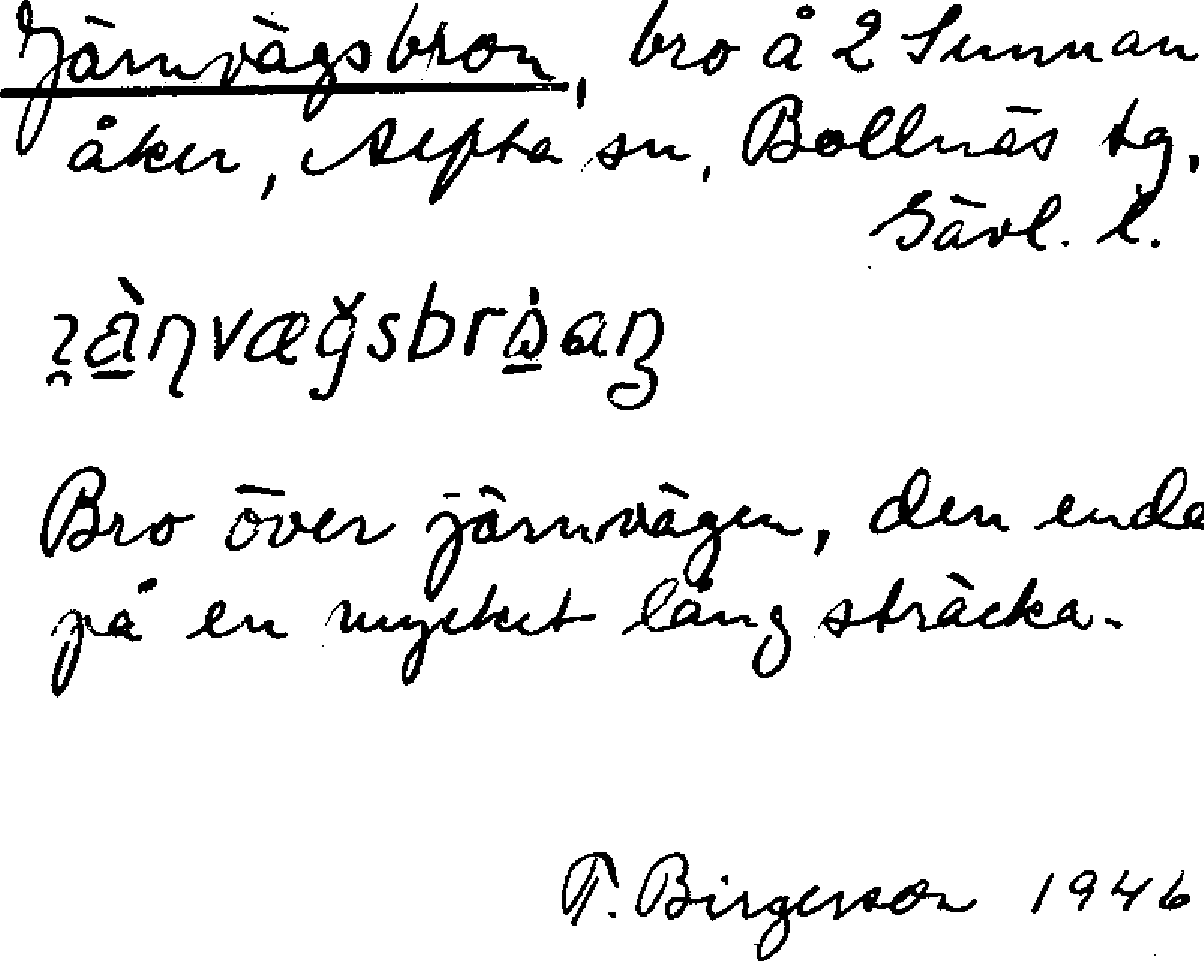 Järnvägsbron, bro å 2 Sunnan
åker, Alfta sn, Bollnäs tg,
Gävl. l.
Bro över järnvägen, den enda
på en mycket lång sträcka.
T. Birgerson 1946